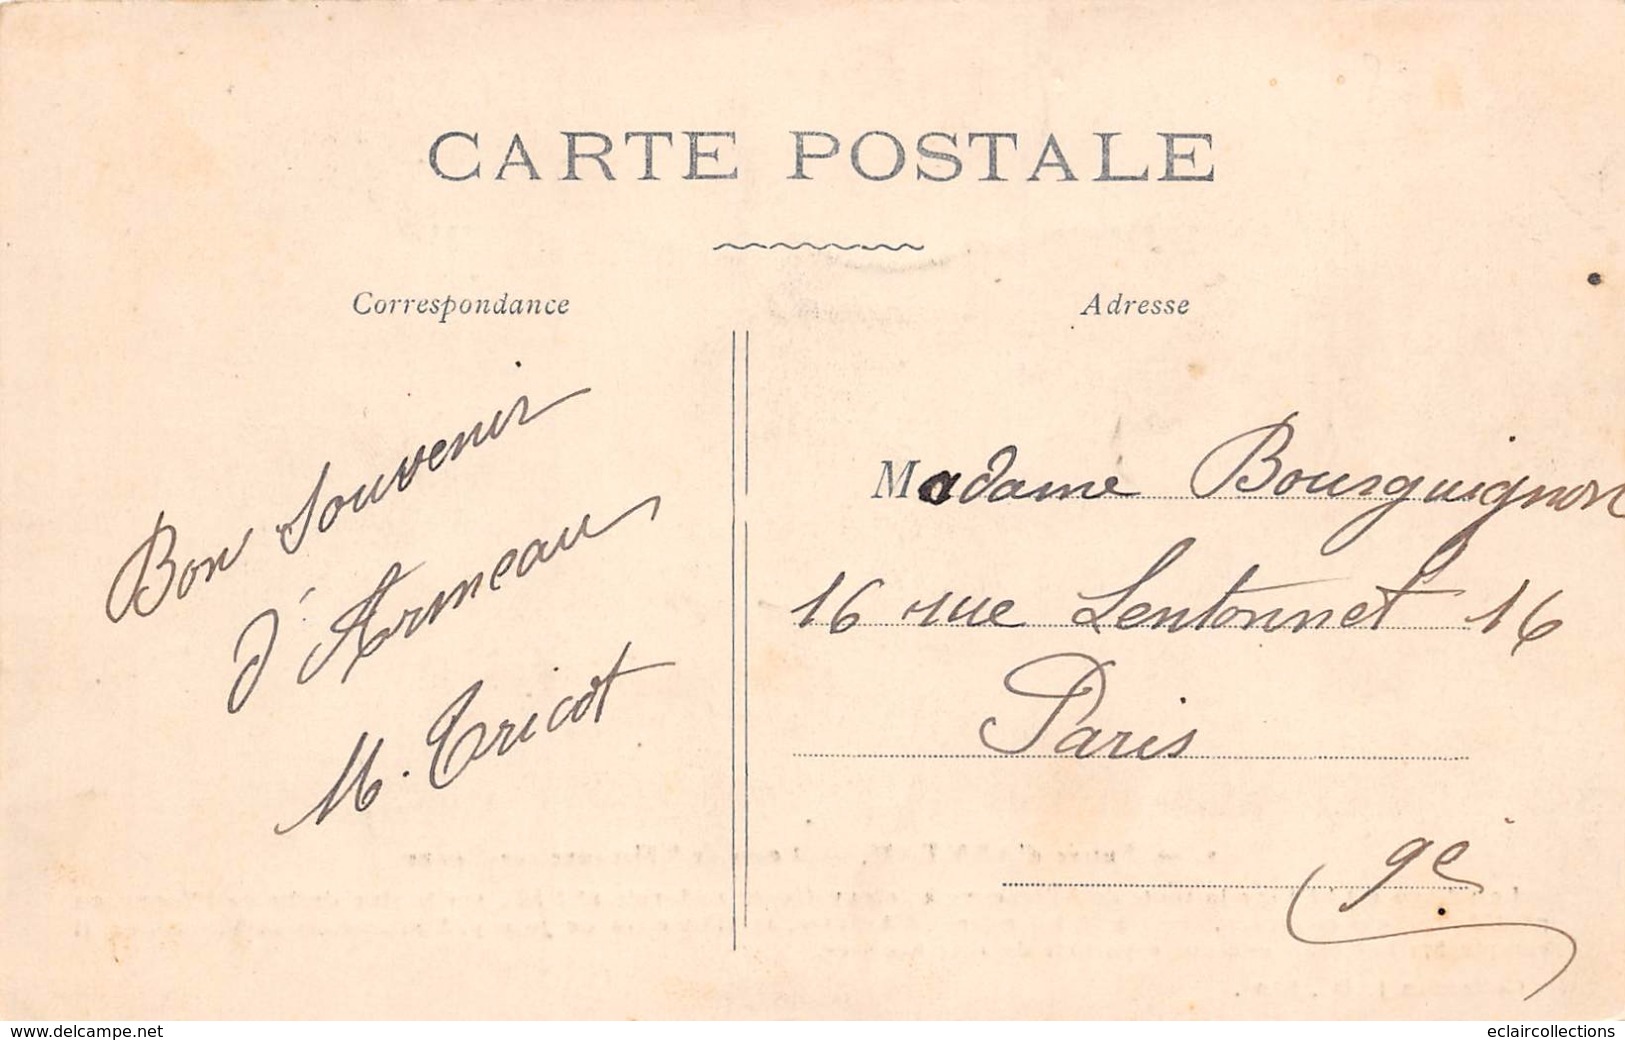 CARTE POSTALE
Correspondance
Adresse
Bon souvenir
d'Armeau
M. Tricot
Madame Bourguignon
16 rue Lentonnet 16
Paris
9e
www.delcampe.net
eclaircollections